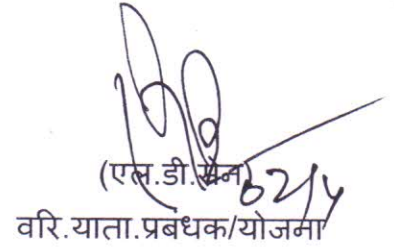 (एल.डी.सेन) 02/4
वरि.याता.प्रबंधक/योजना